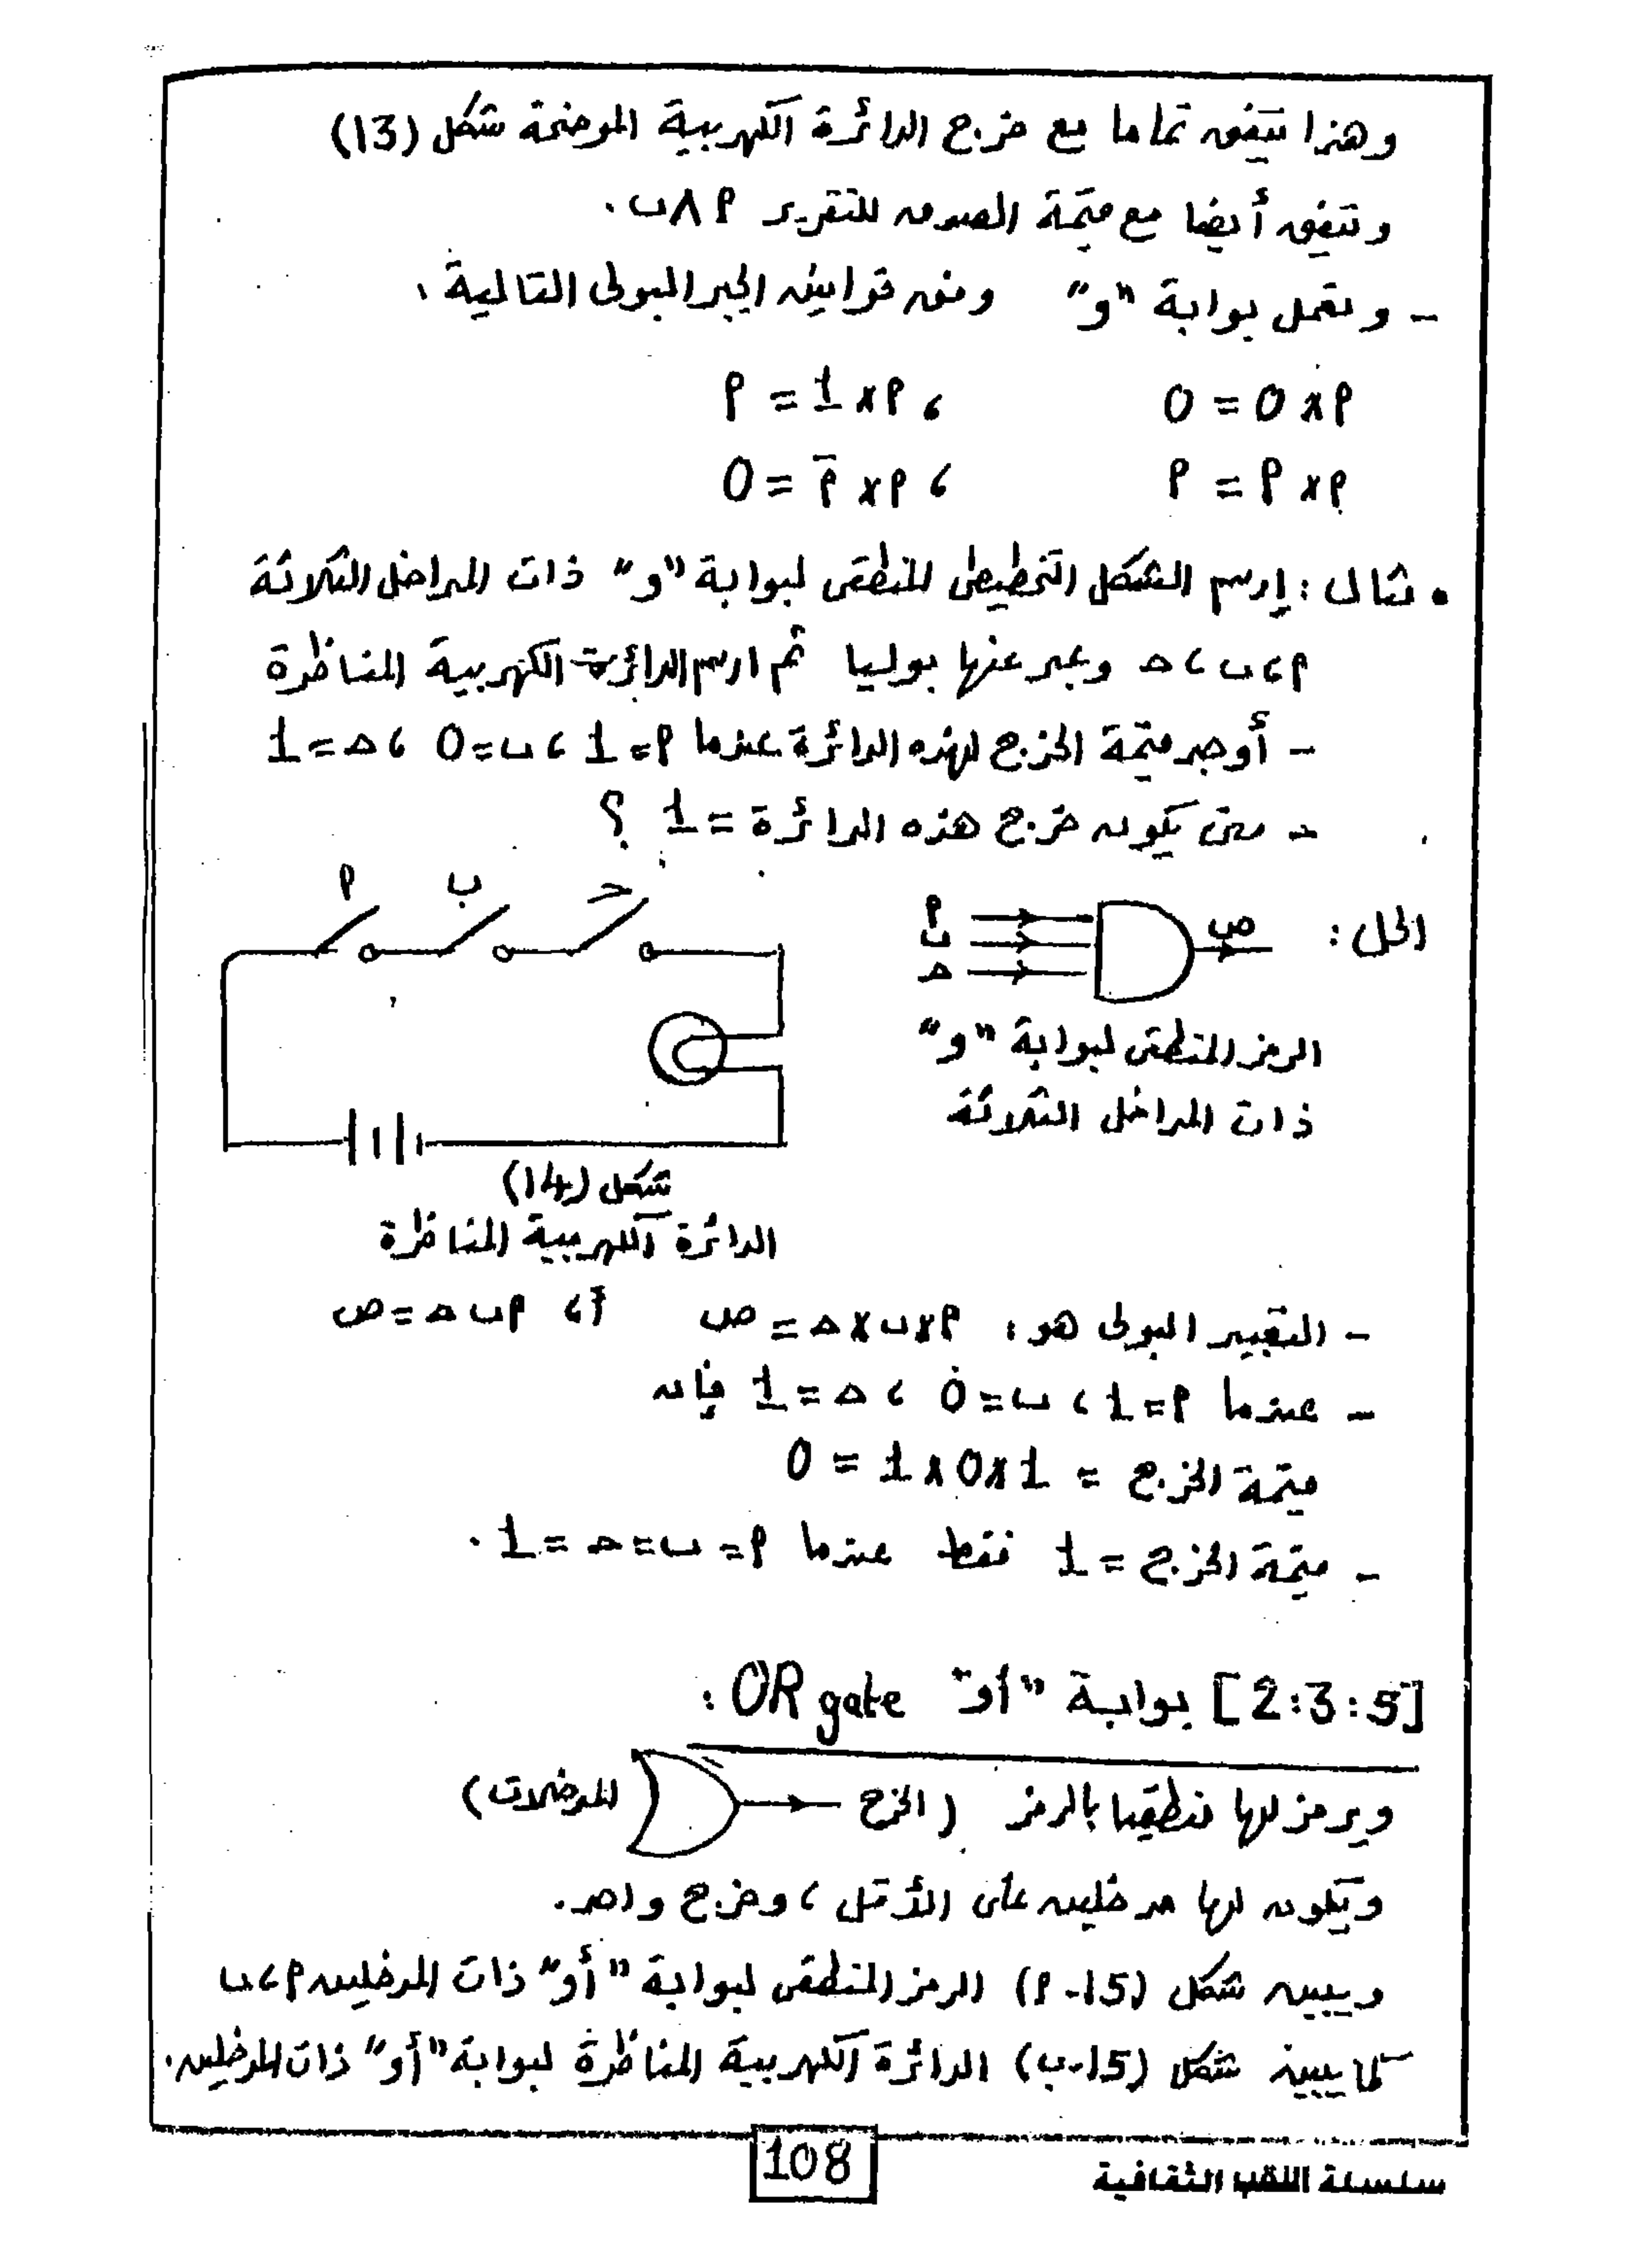 وهذا يتفق تماما مع خرج الدائرة الكهربية الموضحة شكل (13)
وتتفق أيضا مع قيمة الصدق للتقرير أ ∧ ب.
- وتعمل بوابة "و" وفق قوانين الجبر البولى التالية:
أ × 0 = 0 ، أ × 1 = أ
أ × أ = أ ، أ × أ̅ = 0
• مثال : إرسم الشكل التخطيطى المنطقى لبوابة "و" ذات المداخل الثلاثة
أ ، ب ، حـ وعبر عنها بوليا ثم ارسم الدائرة الكهربية المناظرة
- أوجد قيمة الخرج لهذه الدائرة عندما أ = 1 ، ب = 0 ، حـ = 1
- متى يكون خرج هذه الدائرة = 1 ؟
الحل :
أ
ب
حـ
ص
الرمز المنطقى لبوابة "و"
ذات المداخل الثلاثة
أ ب حـ
شكل (14)
الدائرة الكهربية المناظرة
- التعبير البولى هو : أ × ب × حـ = ص أ، أ ب حـ = ص
- عندما أ = 1 ، ب = 0 ، حـ = 1 فإن
قيمة الخرج = 1 × 0 × 1 = 0
- قيمة الخرج = 1 فقط عندما أ = ب = حـ = 1 .
[2:3:5] بوابة "أو" OR gate :
ويرمز لها منطقيا بالرمز (الخرج المدخلات)
ويكون لها مدخلين على الأقل ، وخرج واحد.
ويبين شكل (15-أ) الرمز المنطقى لبوابة "أو" ذات المدخلين أ ، ب
كما يبين شكل (15-ب) الدائرة الكهربية المناظرة لبوابة "أو" ذات المدخلين.
108
سلسلة اللقب الثقافية